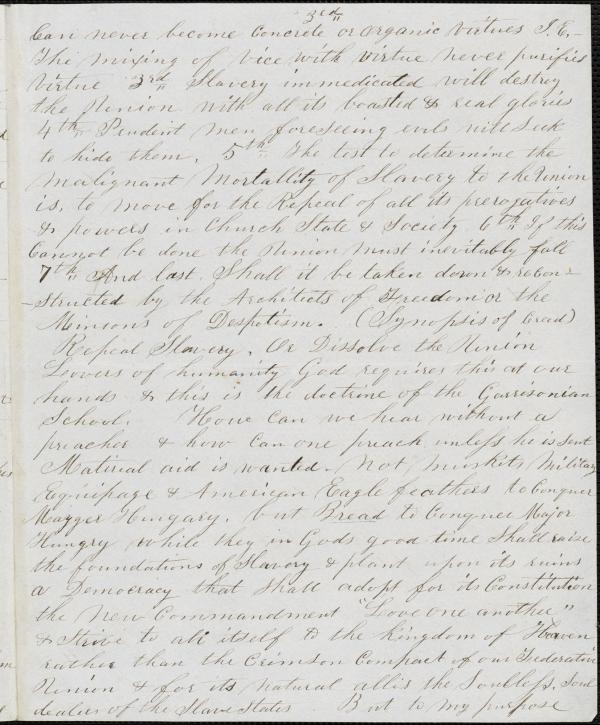 3rd"
Can never become Concrete or organic virtues I.E.-
The mixing of vice with virtue never purifies
virtue 3rd" Slavery immedicated will destroy
the Union with all its boasted & real glories
4th" Prudent men foreseeing evils will seek
to hide them. 5th" The test to determine the
Malignant Mortallity of Slavery to the Union
is, to move for the Repeal of all its prerogatives
& powers in Church State & Society 6th" If this
Cannot be done the Union must inevitably fall
7th" And last. Shall it be taken down & recon-
-structed by the Architects of Freedom or the
Minions of Despotism. (Synopsis of Creed)
Repeal Slavery, Or Dissolve the Union
Lovers of humanity God requires this at our
hands & this is the doctrine of the Garrisonian
School. Howe can we hear without a
preacher & how can one preach unless he is sent
Material aid is wanted - Not Muskits, Military
Equipage & American Eagle feathers to Conquer
Magger Hungary, but Bread to Conquer Major
Hungry while they in Gods good time shall raise
the foundations of Slavery & plant upon its ruins
a Democracy that shall adopt for its Constitution
the New Commandment "Love one another"
& Strive to ali itself to the kingdom of Heaven
rather than the Crimson Compact of our Federative
Union & for its natural allis the Soulless, Soul
dealers of the Slave States But to my purpose